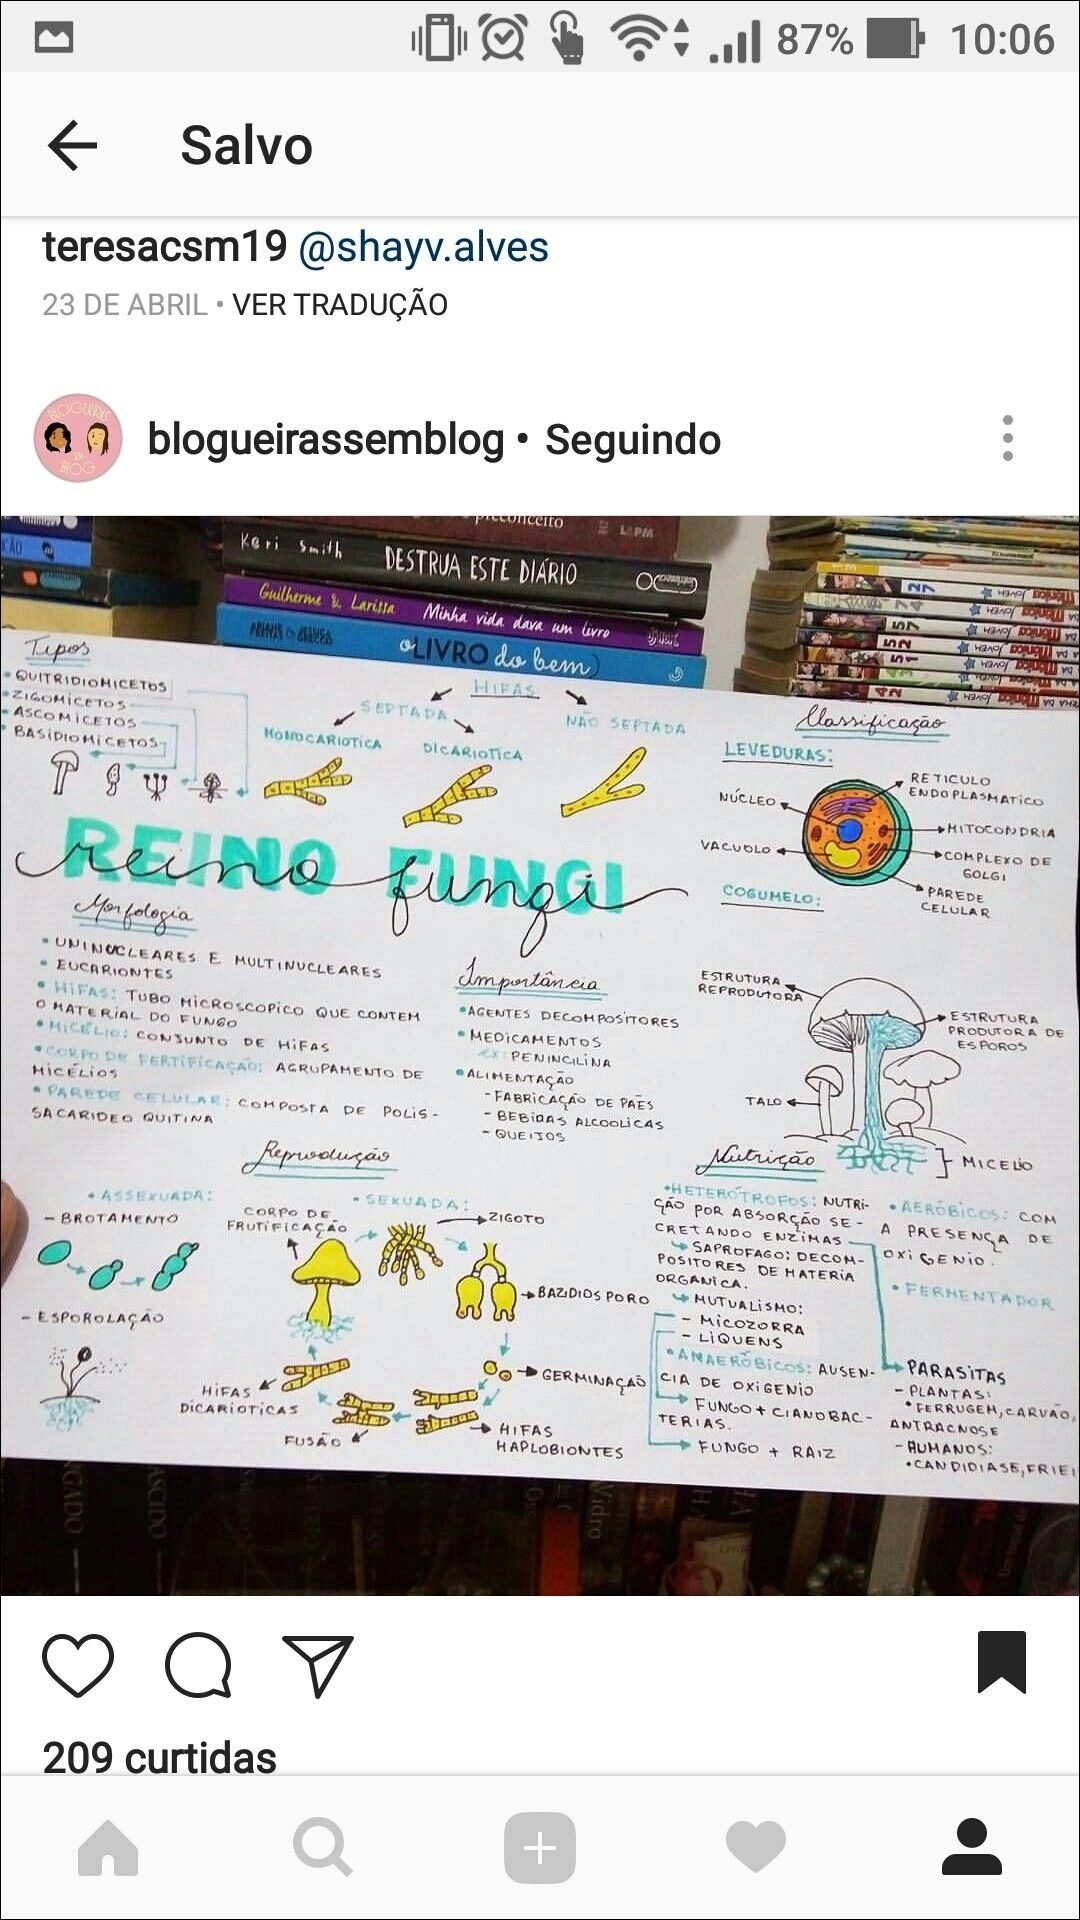 87% 10:06
Salvo
teresacsm19 @shayv.alves
23 DE ABRIL • VER TRADUÇÃO
BLOGUEIRAS
SEM
BLOG
blogueirassemblog • Seguindo
preconceito L&PM
Keri Smith DESTRUA ESTE DIÁRIO
Guilherme & Larissa Minha vida dava um livro
o LIVRO do bem
Tipos
• QUITRIDIOMICETOS
• ZIGOMICETOS
• ASCOMICETOS
• BASIDIOMICETOS
HIFAS
SEPTADA
NÃO SEPTADA
MONOCARIOTICA
DICARIOTICA
REINO FUNGI
reino fungi
Classificação
LEVEDURAS:
NÚCLEO
VACUOLO
RETICULO
ENDOPLASMÁTICO
MITOCONDRIA
COMPLEXO DE
GOLGI
PAREDE
CELULAR
COGUMELO:
ESTRUTURA
REPRODUTORA
ESTRUTURA
PRODUTORA DE
ESPOROS
TALO
MICELIO
Morfologia
• UNINUCLEARES E MULTINUCLEARES
• EUCARIONTES
• HIFAS: TUBO MICROSCOPICO QUE CONTEM
O MATERIAL DO FUNGO
• MICÉLIO: CONJUNTO DE HIFAS
• CORPO DE FERTIFICAÇÃO: AGRUPAMENTO DE
MICÉLIOS
• PAREDE CELULAR: COMPOSTA DE POLIS-
SACARIDEO QUITINA
Importância
• AGENTES DECOMPOSITORES
• MEDICAMENTOS
EX: PENINCILINA
• ALIMENTAÇÃO
- FABRICAÇÃO DE PAES
- BEBIDAS ALCOOLICAS
- QUEIJOS
Reprodução
• ASSEXUADA:
- BROTAMENTO
- ESPOROLAÇÃO
• SEXUADA:
CORPO DE
FRUTIFICAÇÃO
ZIGOTO
BAZIDIOS PORO
GERMINAÇÃO
HIFAS
HAPLOBIONTES
FUSÃO
HIFAS
DICARIOTICAS
Nutrição
• HETERÓTROFOS: NUTRI-
ÇÃO POR ABSORÇÃO SE-
CRETANDO ENZIMAS
SAPROFAGO: DECOM-
POSITORES DE MATERIA
ORGANICA.
MUTUALISMO:
- MICOZORRA
- LIQUENS
• ANAERÓBICOS: AUSEN-
CIA DE OXIGENIO
FUNGO + CIANOBAC-
TERIAS.
FUNGO + RAIZ
• AERÓBICOS: COM
A PRESENÇA DE
OXIGENIO.
• FERMENTADOR
PARASITAS
- PLANTAS:
• FERRUGEM, CARVÃO,
ANTRACNOSE
- HUMANOS:
• CANDIDIASE, FRIEI
209 curtidas